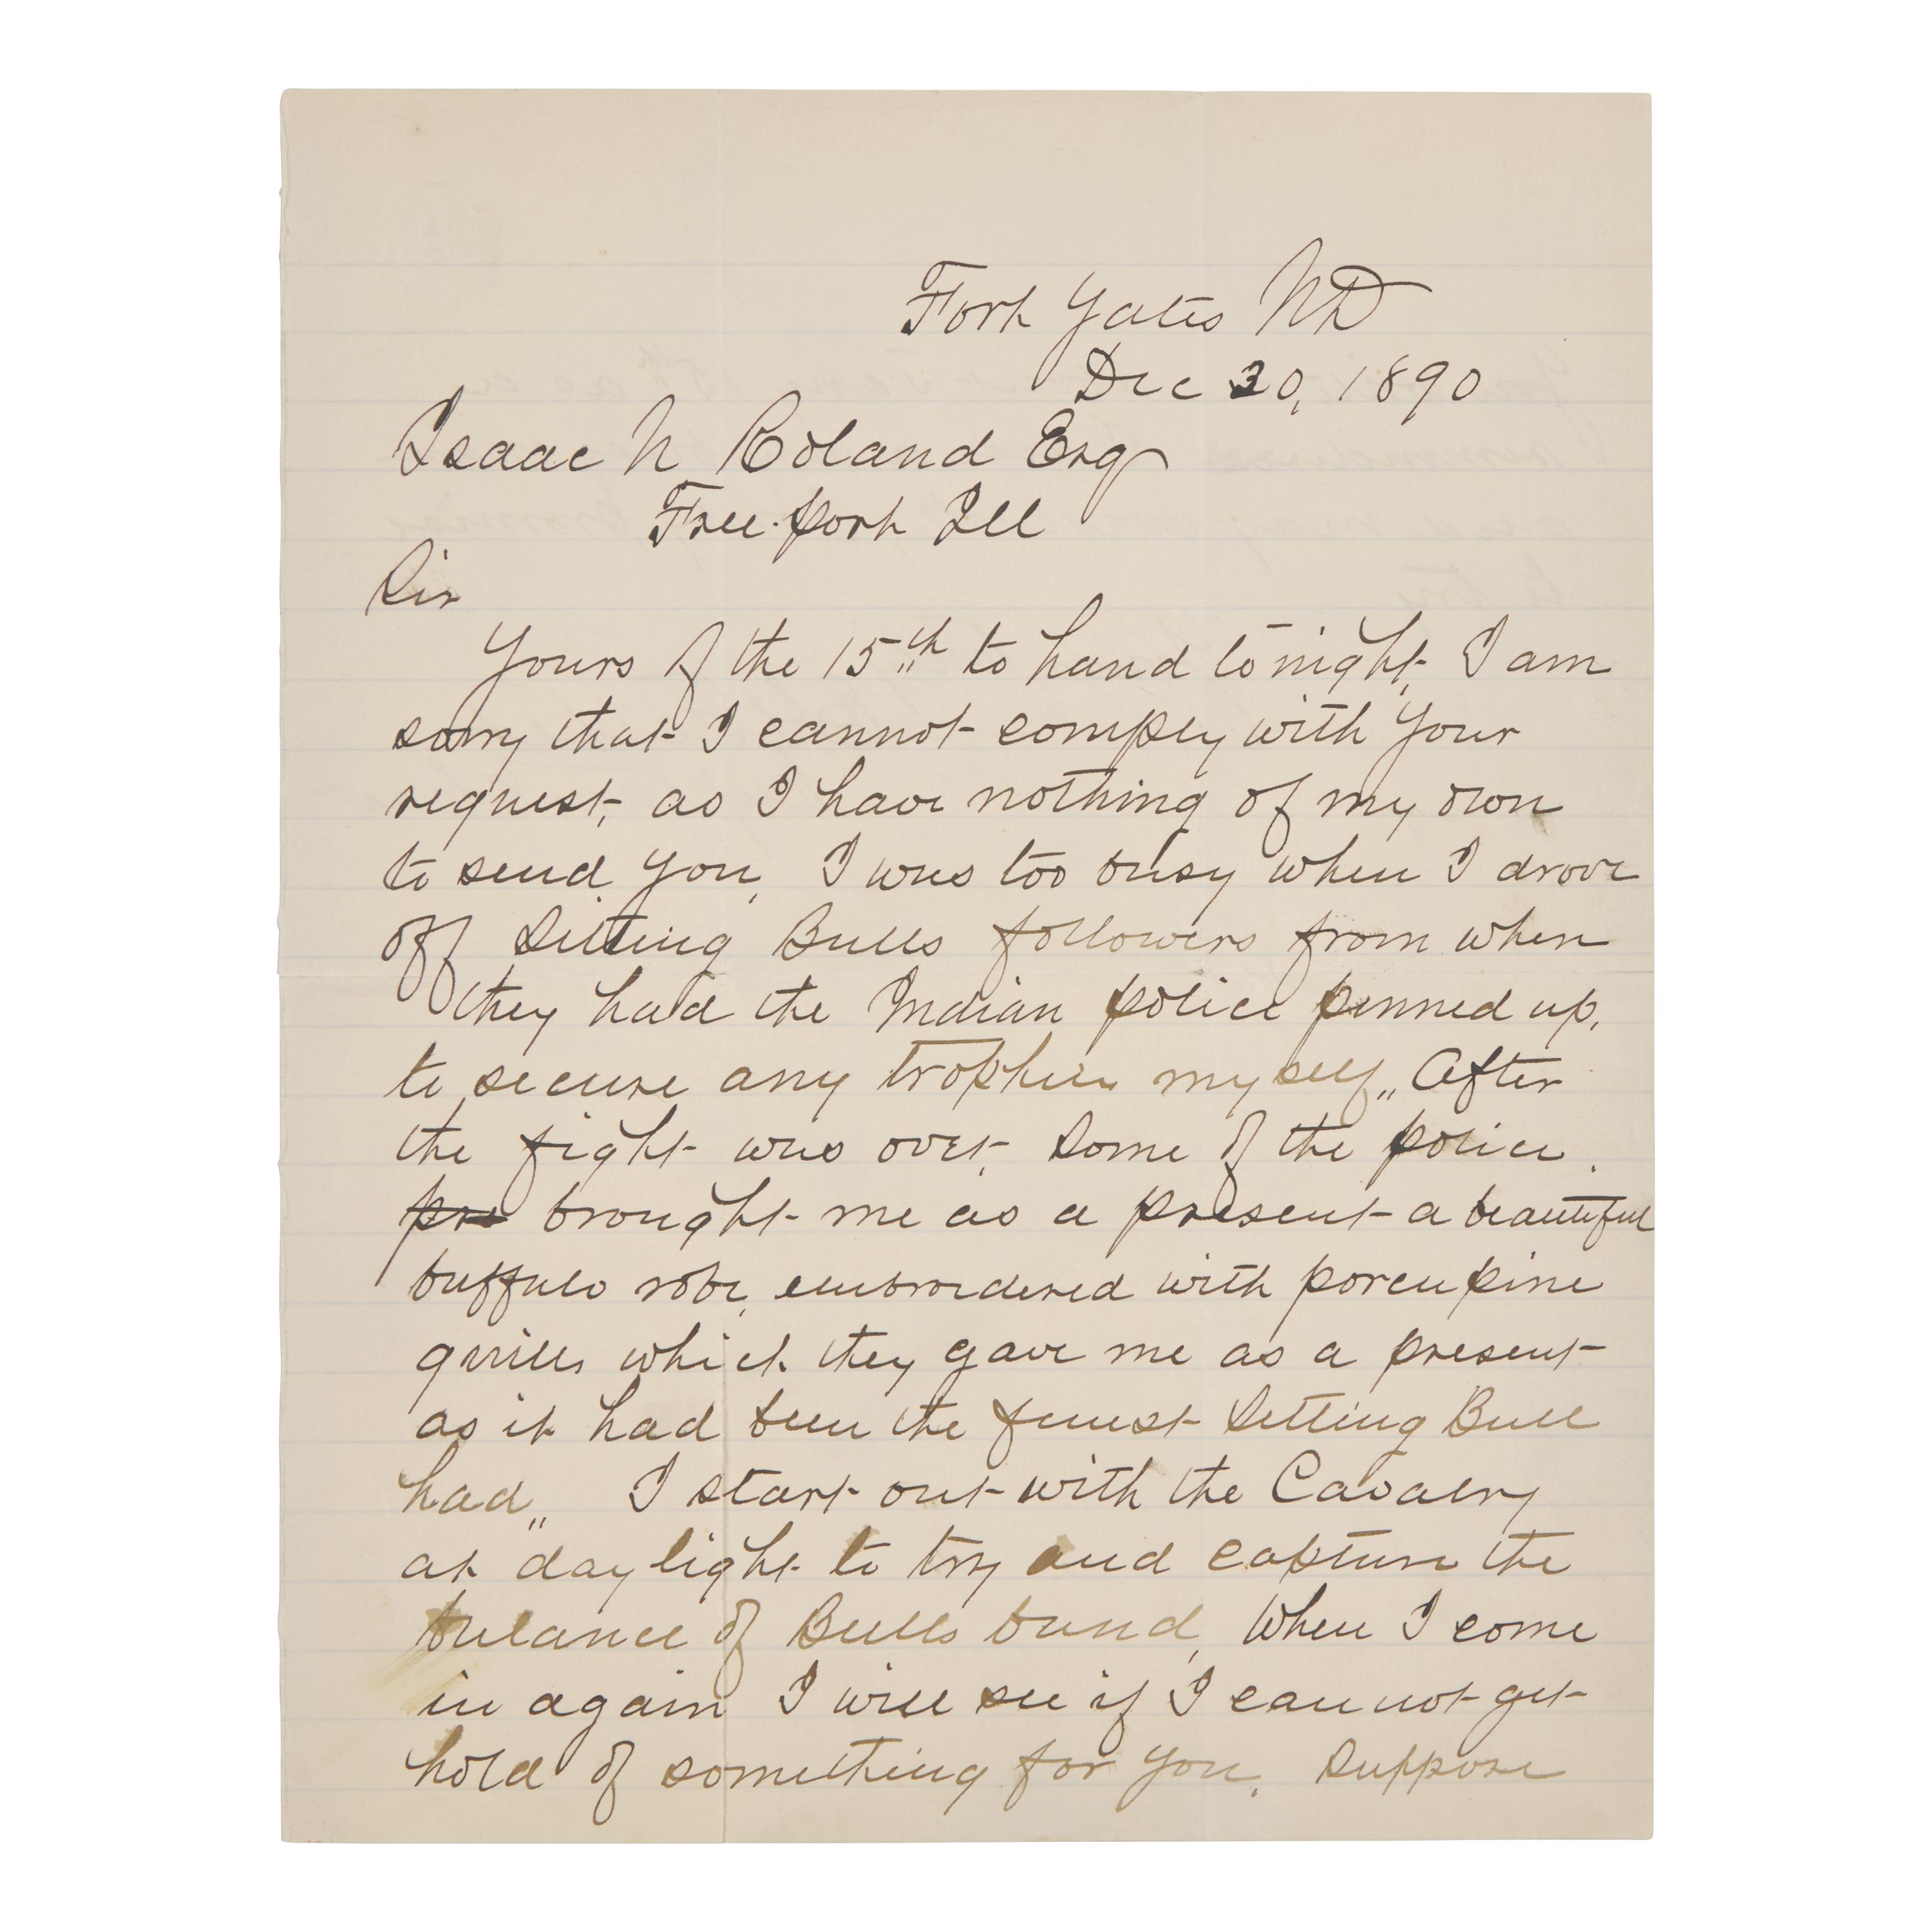 Fort Yates ND
Dec 30, 1890
Isaac N Roland Esq
Free-port Ill
Sir
Yours of the 15th to hand to night, I am
sorry that I cannot comply with your
request, as I have nothing of my own
to send you, I was too busy when I drove
off Sitting Bulls followers from when
they had the Indian police penned up,
to secure any trophies myself,, After
the fight was over, some of the police.
pre brought me as a present a beautiful
buffalo robe, embroidered with porcupine
quills which they gave me as a present
as it had been the finest Sitting Bull
had,, I start out with the Cavalry
at day light to try and capture the
balance of Bulls band, When I come
in again I will see if I can not get
hold of something for you. Suppose